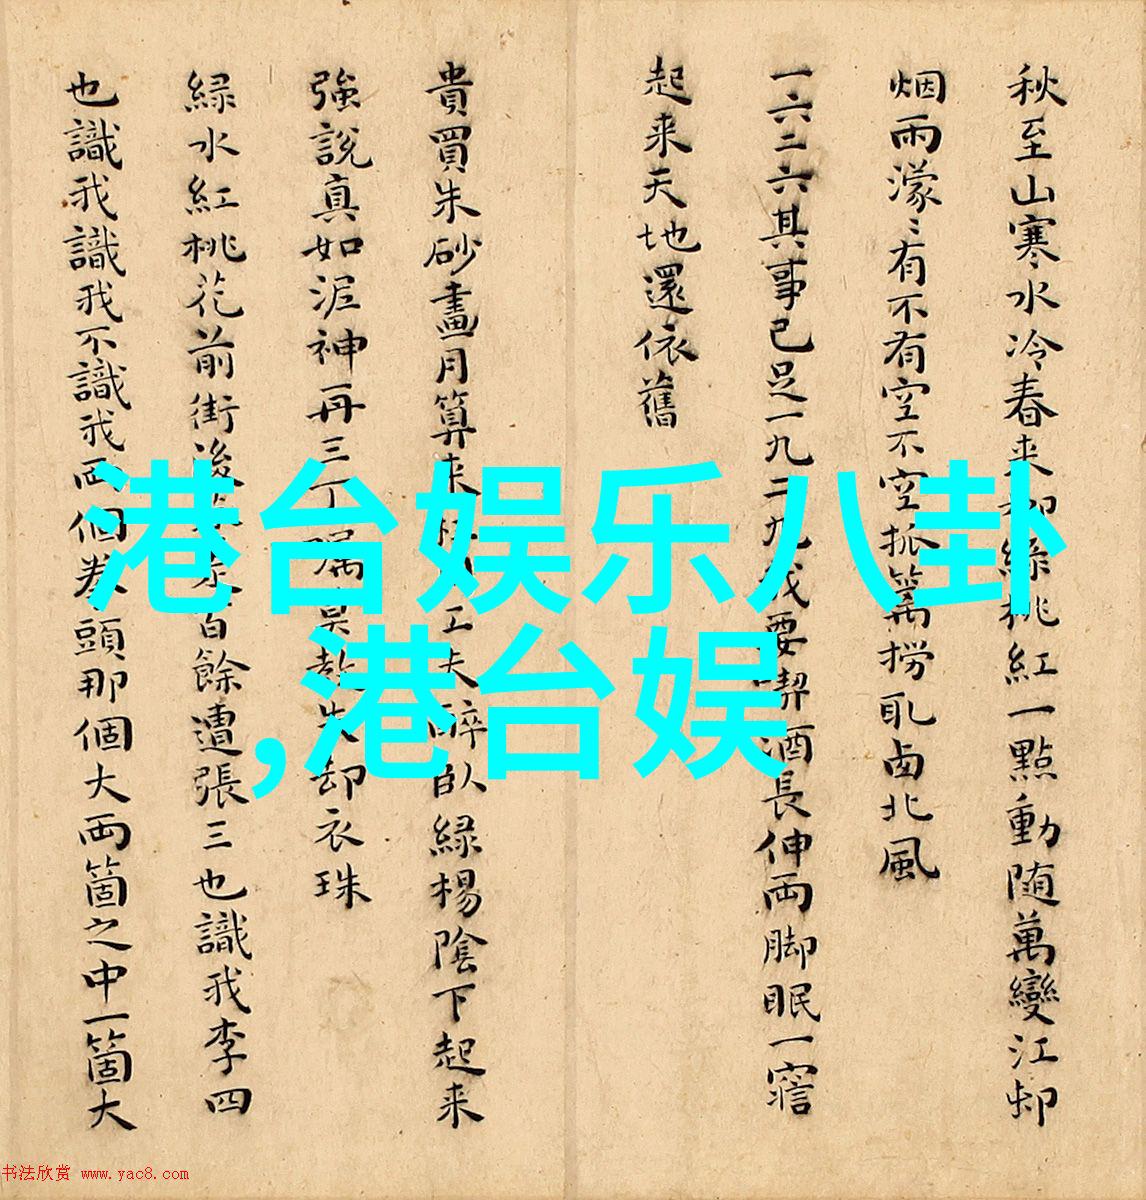 秋至山寒水冷春来柳綠桃紅一點動随萬變江邨
烟雨濛〻有不有空不空抓篱撈取西北風
一六二六其事已足一九二九我要喫酒長伸两脚眠一寤
起来天地還依舊
貴買朱砂畫月算来枉用工夫醉臥緑楊陰下起来
強說真如泥神再三丁囑莫教失却衣珠
緑水紅桃花前街後走百餘遭張三也識我李四
也識我識我不識我两個拳頭那個大两箇之中一箇大
港台娱乐八卦
,港台娱
书法欣赏 www.yac8.com